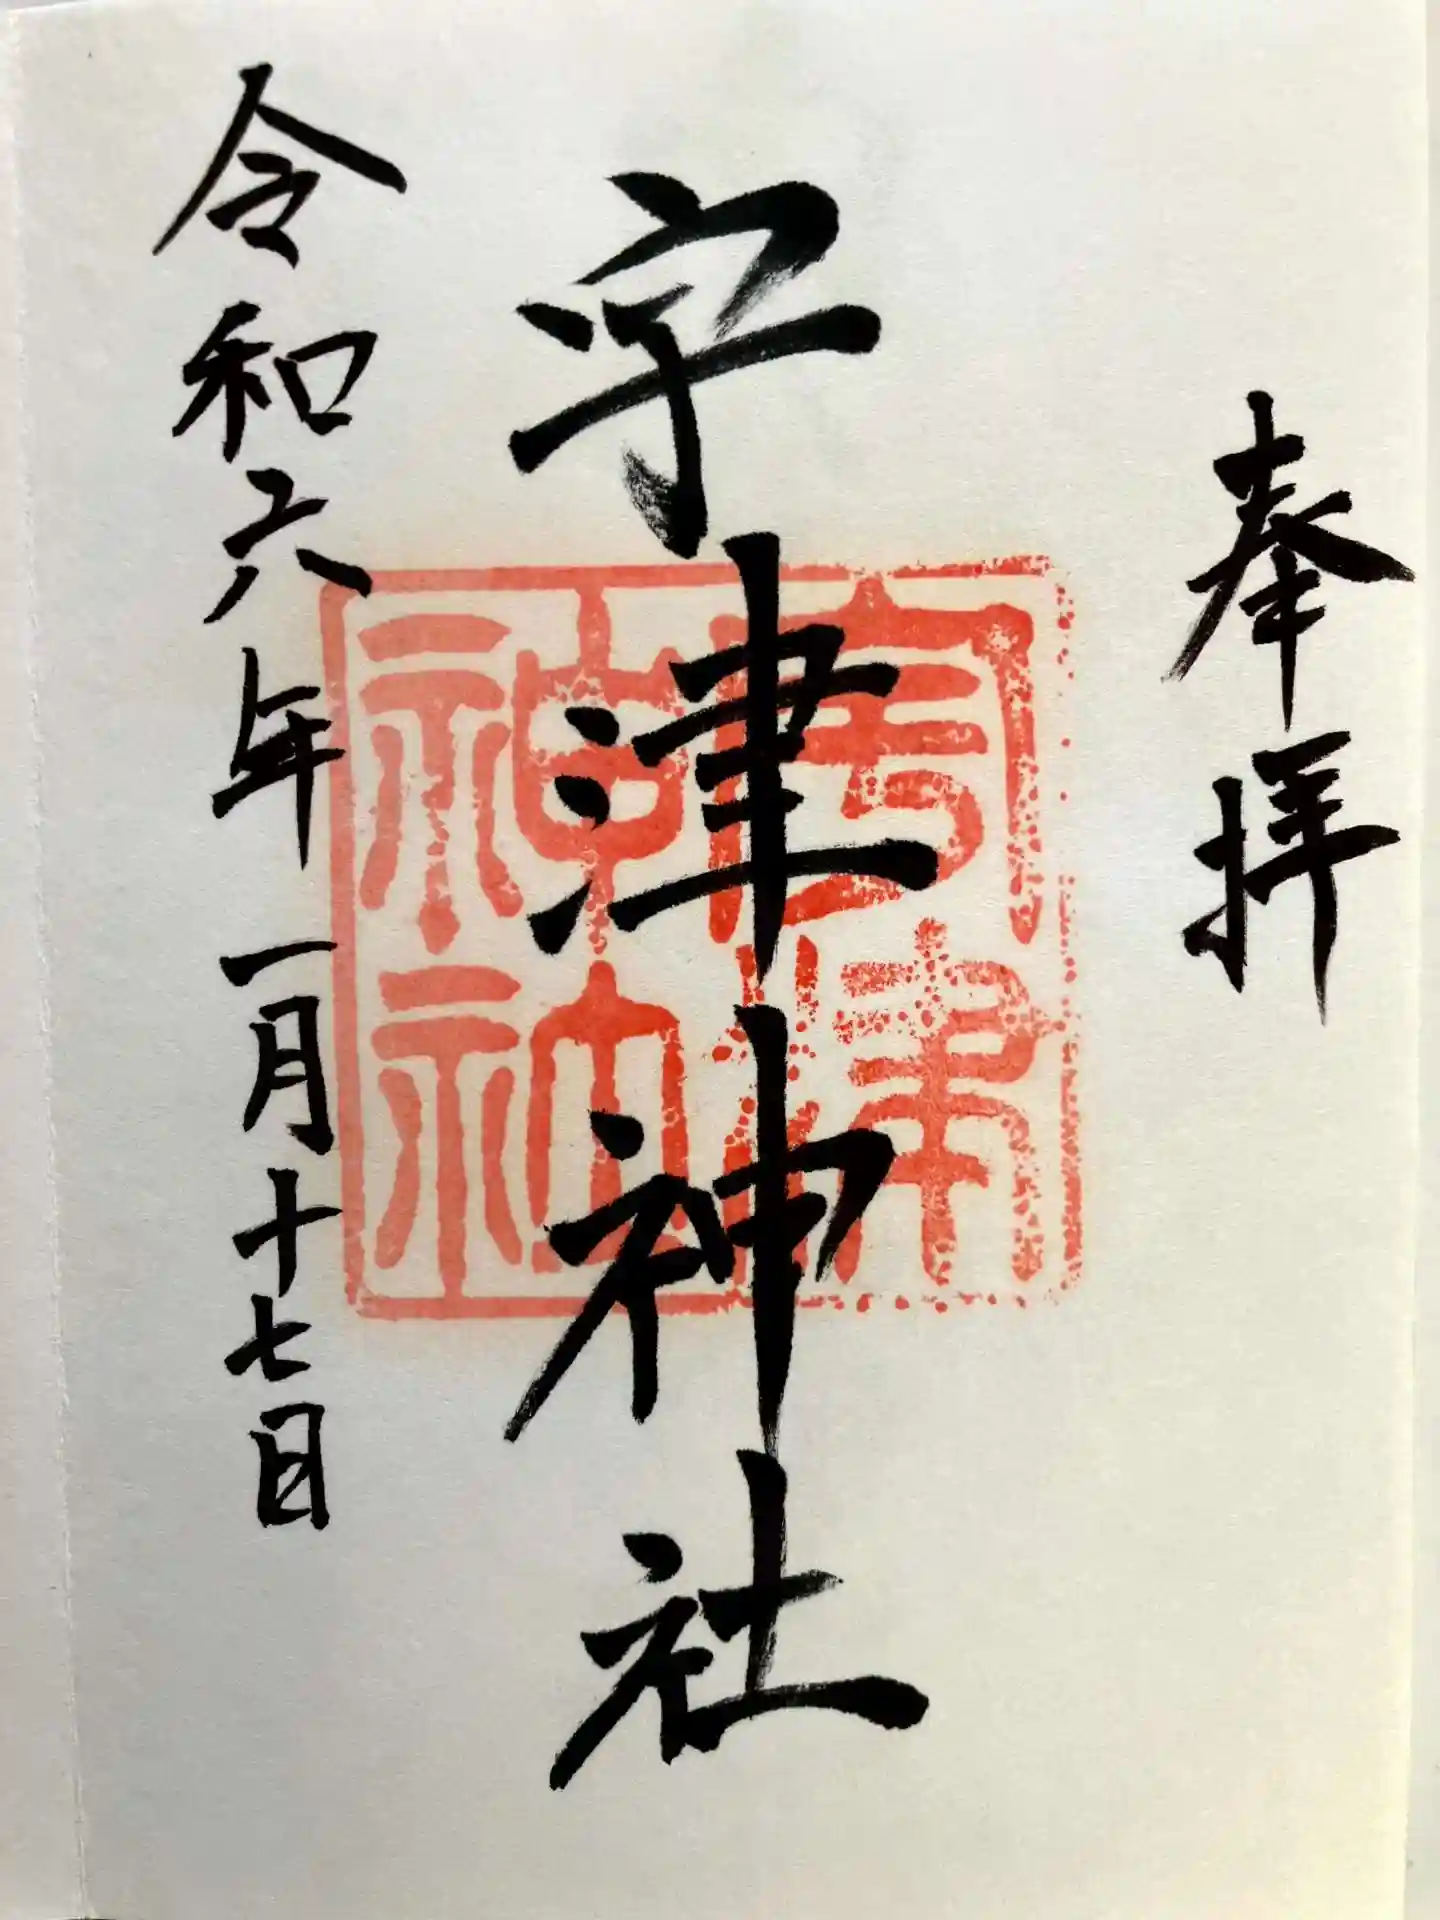 奉拝
宇津神社
宇津
神社
令和六年一月十七日